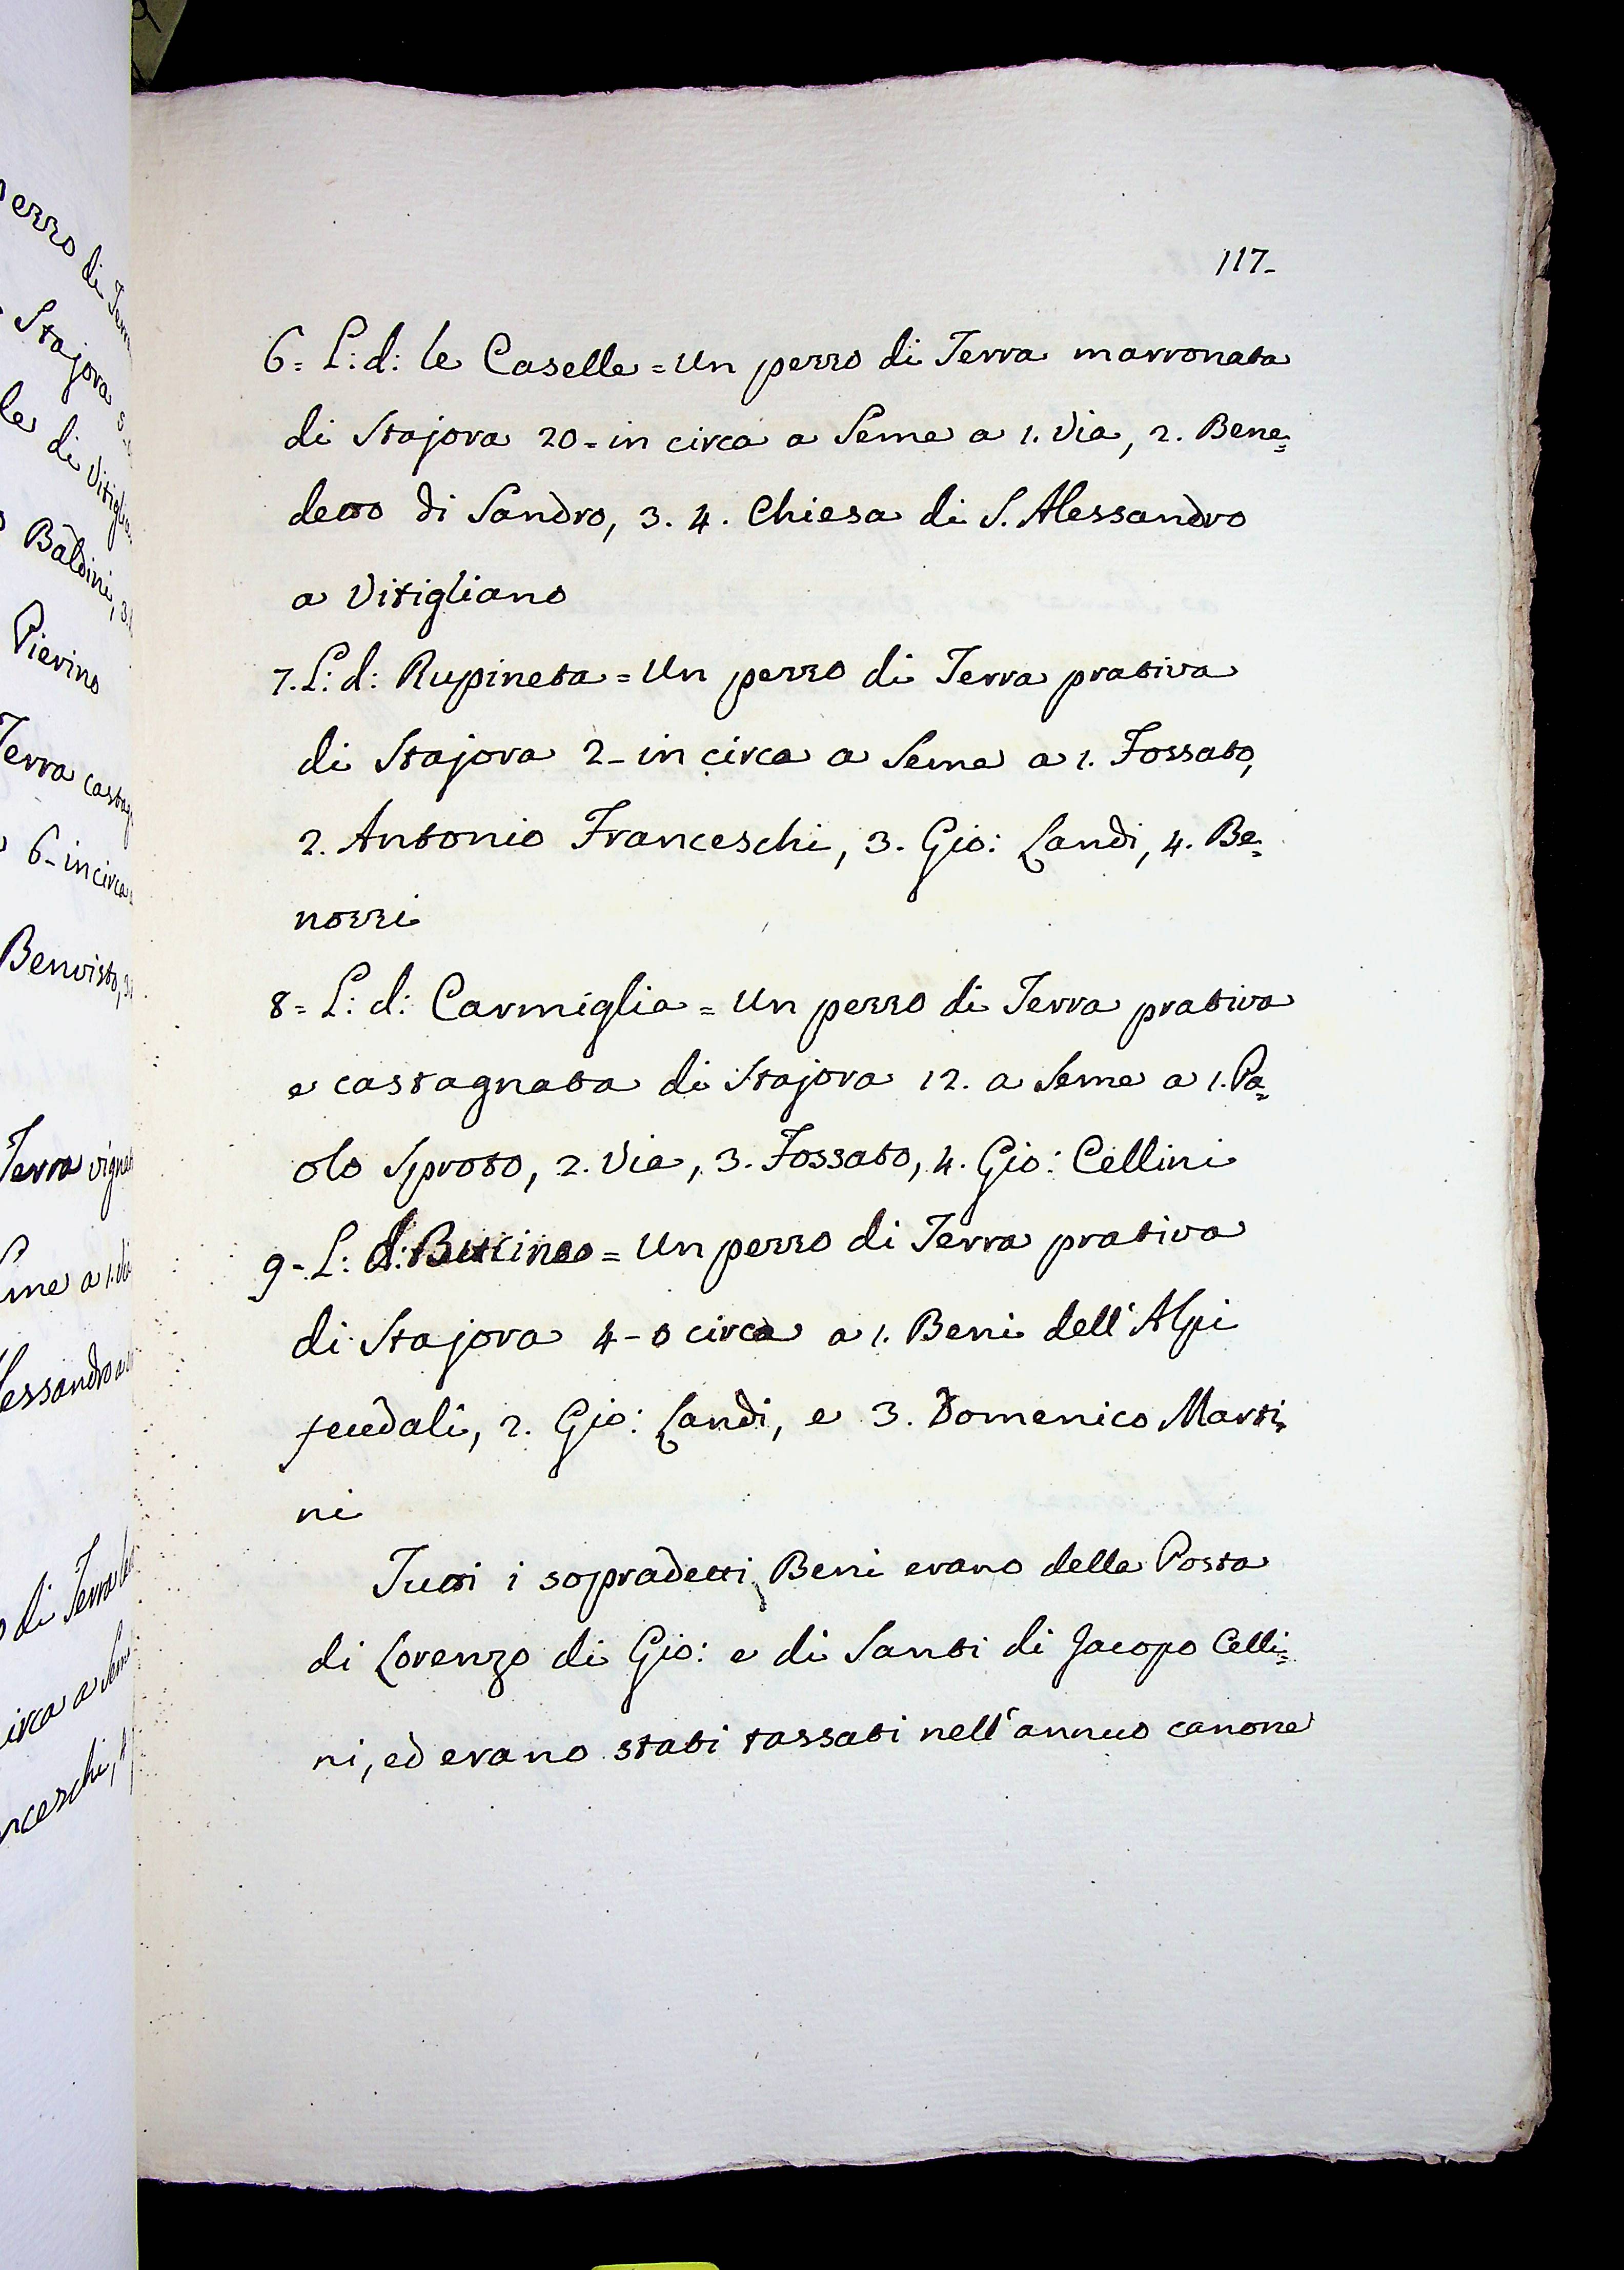 erzo di Terr
Stajora
le di Vitiglia
Baldini, 3.
Pierino
Terra castag
6- in circa
Benvisto, 3.
Terra vigna
Seme a 1. Via
lessandro a
di Terra
irca a Sem
nceschi,
117-
6= L: d: le Caselle = Un pezzo di Terra marronata
di Stajora 20= in circa a Seme a 1. Via, 2. Bene=
detto di Sandro, 3. 4. Chiesa di S. Alessandro
a Vitigliano
7. L: d: Rupineta = Un pezzo di Terra prativa
di Stajora 2- in circa a Seme a 1. Fossato,
2. Antonio Franceschi, 3. Gio: Landi, 4. Be=
nozzi
8= L: d: Carmiglia = Un pezzo di Terra prativa
e castagnata di Stajora 12. a Seme a 1. Pa=
olo Sproto, 2. Via, 3. Fossato, 4. Gio: Cellini
9- L: d: = Un pezzo di Terra prativa
di Stajora 4- o circa a 1. Beni dell'Alpi
feudali, 2. Gio: Landi, e 3. Domenico Marti=
ni
Tutti i sopradetti Beni erano della Posta
di Lorenzo di Gio: e di Santi di Jacopo Celli=
ni, ed erano stati tassati nell'annuo canone